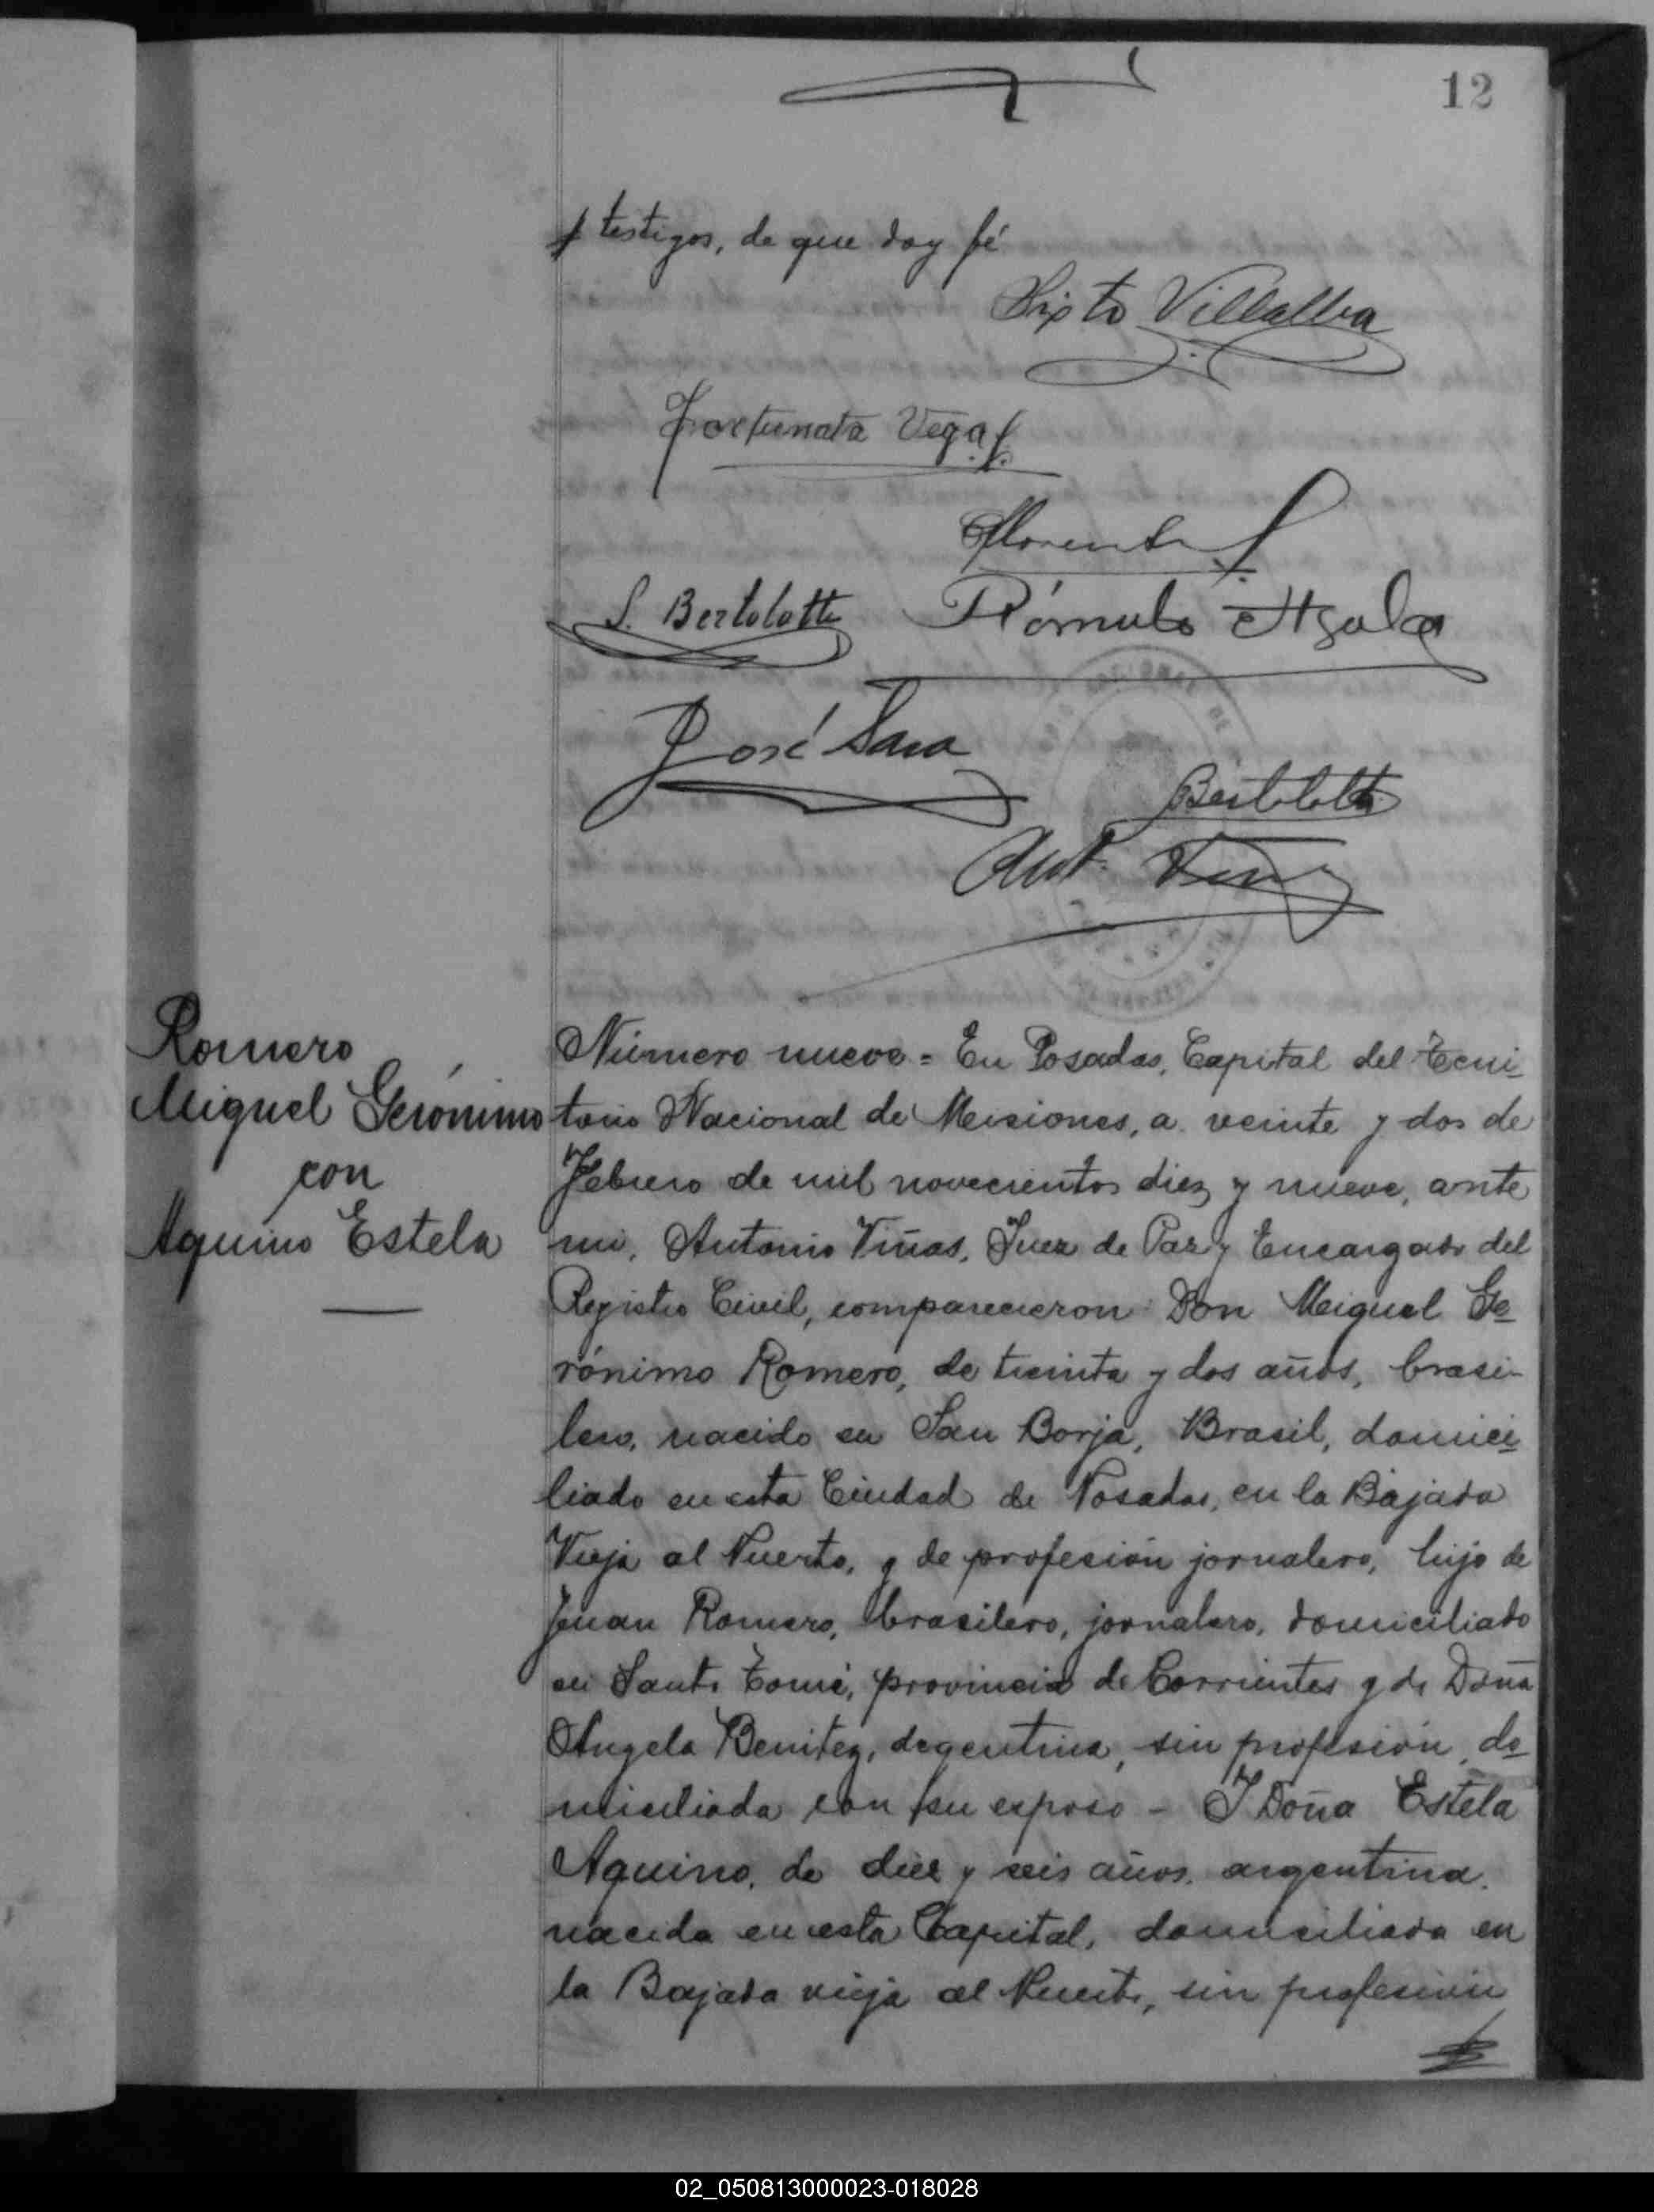 12
testigos, de que doy fé
Sixto Villalba
Fortunata Vega
S. Bertolotti Rómulo Ayala
José Sara
Bertolotti
Ant. Viñas
Romero
Miguel Gerónimo
con
Aquino Estela
Número nueve = En Posadas, Capital del Terri-
torio Nacional de Misiones, a veinte y dos de
Febrero de mil novecientos diez y nueve, ante
mi, Antonio Viñas, Juez de Paz y Encargado del
Registro Civil, comparecieron: Don Miguel Ge-
rónimo Romero, de treinta y dos años, brasi-
lero, nacido en San Borja, Brasil, domici-
liado en esta Ciudad de Posadas, en la Bajada
Vieja al Puerto, y de profesión jornalero, hijo de
Juan Romero, brasilero, jornalero, domiciliado
en Santo Tomé, provincia de Corrientes y de Doña
Angela Benitez, argentina, sin profesión, do-
miciliada con su esposo - Y Doña Estela
Aquino, de diez y seis años, argentina,
nacida en esta Capital, domiciliada en
la Bajada vieja al Puerto, sin profesión
02_050813000023-018028